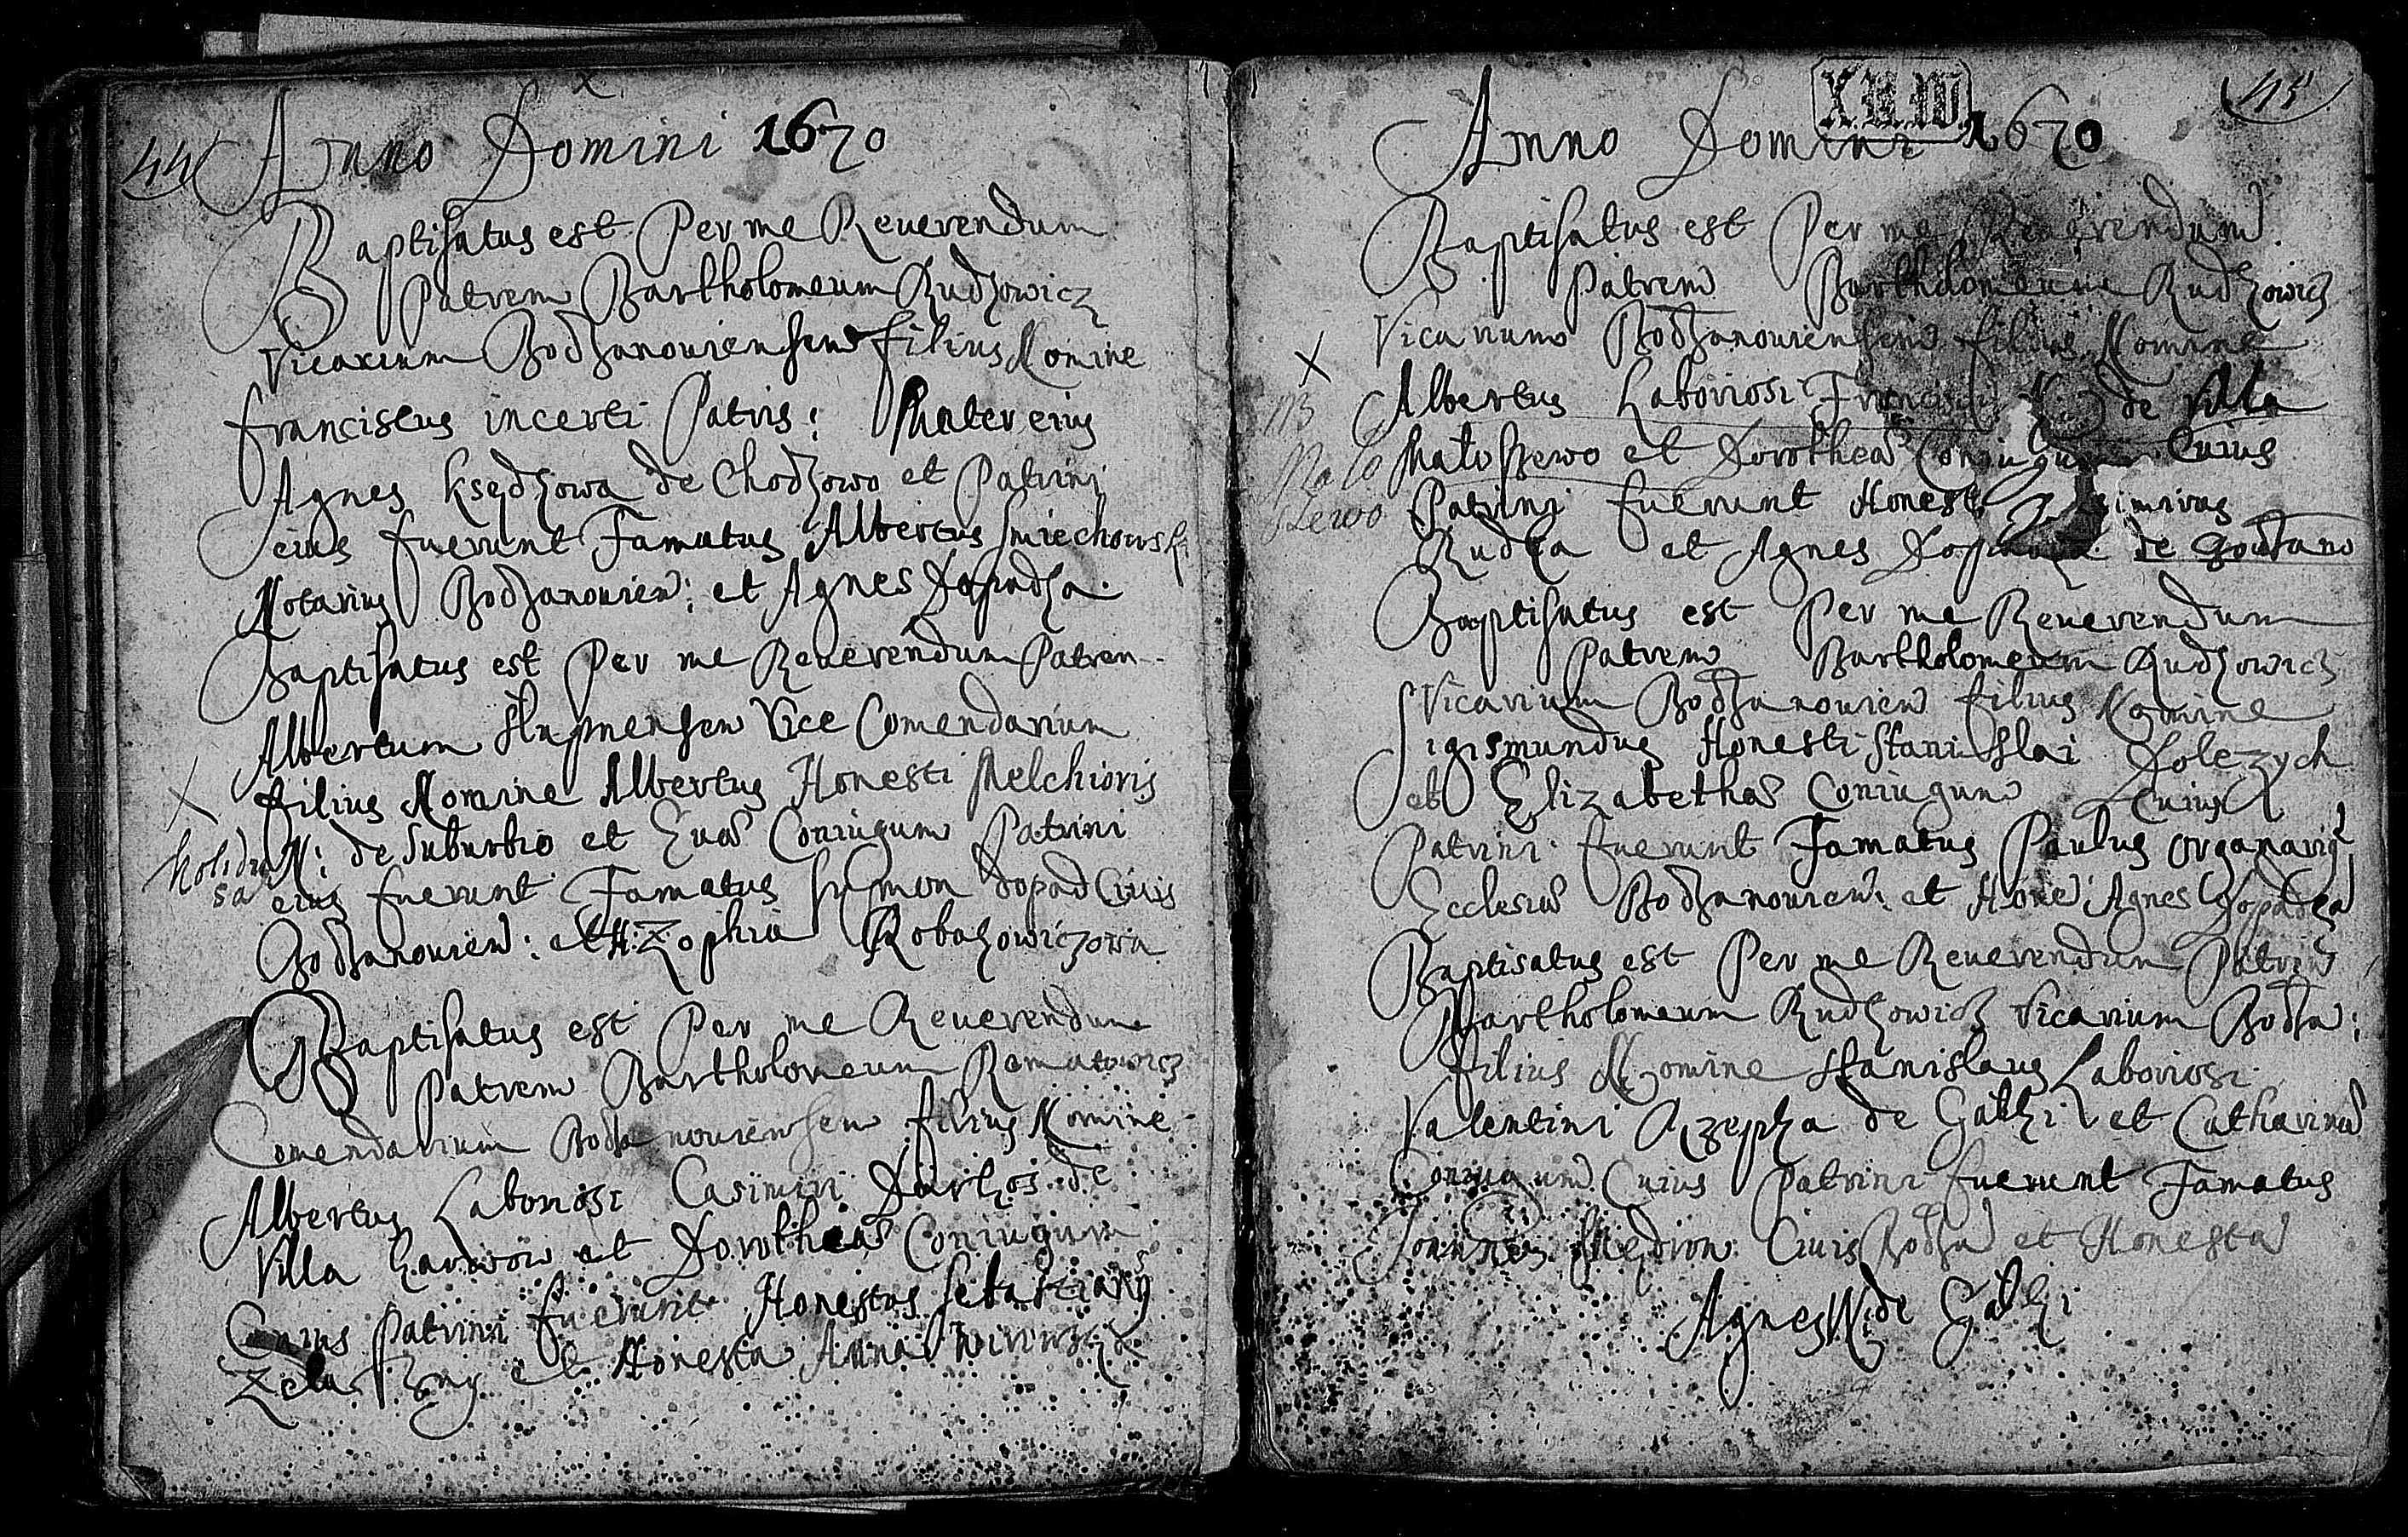 44
Anno Domini 1670
Baptisatus est Per me Reuerendum
Patrem Bartholomeum Rudzowicz
Vicarium Bodzanouiensem filius Nomine
franciscus incerti Patris: Mater eius
Agnes Ksędzowa de Chodzowo et Patrini
eius fuerunt Famatus Albertus Smiechowski
Notarius Bodzanouien: et Agnes
Baptisatus est Per me Reuerendum Patrem
Albertum Slupnensem Vice Comendarium
filius Nomine Albertus Honesti Melchioris
N: de Suburbio et Euae Coniugum Patrini
eius fuerunt Famatus Symon Dopad Ciuis
Bodzanouien: et H: Zophia
Baptisatus est Per me Reuerendum
Patrem Bartholomeum
Comendarium Bodzanouiensem filius Nomine
Albertus Laboriosi Casimiri de
Villa et Dorotheae Coniugum
Cuius Patrini fuerunt Honestus Sebastianus
et Honesta Anna
45
X.U.W.
Anno Domini 1670
Baptisatus est Per me Reuerendum
Patrem Bartholomeum Rudzowicz
Vicarium Bodzanouiensem filius Nomine
Albertus Laboriosi Francisci de Villa
et Dorotheae Coniugum Cuius
Patrini fuerunt Honest
Rudka et Agnes de
Baptisatus est Per me Reuerendum
Patrem Bartholomeum Rudzowicz
Vicarium Bodzanouien filius Nomine
Sigismundus Honesti Stanislai Dolezych
et Elizabethae Coniugum Cuius
Patrini fuerunt Famatus Paulus Organarius
Ecclesiae Bodzanouien: et Hone: Agnes
Baptisatus est Per me Reuerendum Patrem
Bartholomeum Rudzowicz Vicarium Bodza:
filius Nomine Stanislaus Laboriosi
Valentini Rzepka de et Catharinae
Coniugum Cuius Patrini fuerunt Famatus
Ciuis Bodza et Honesta
Agnes N: de